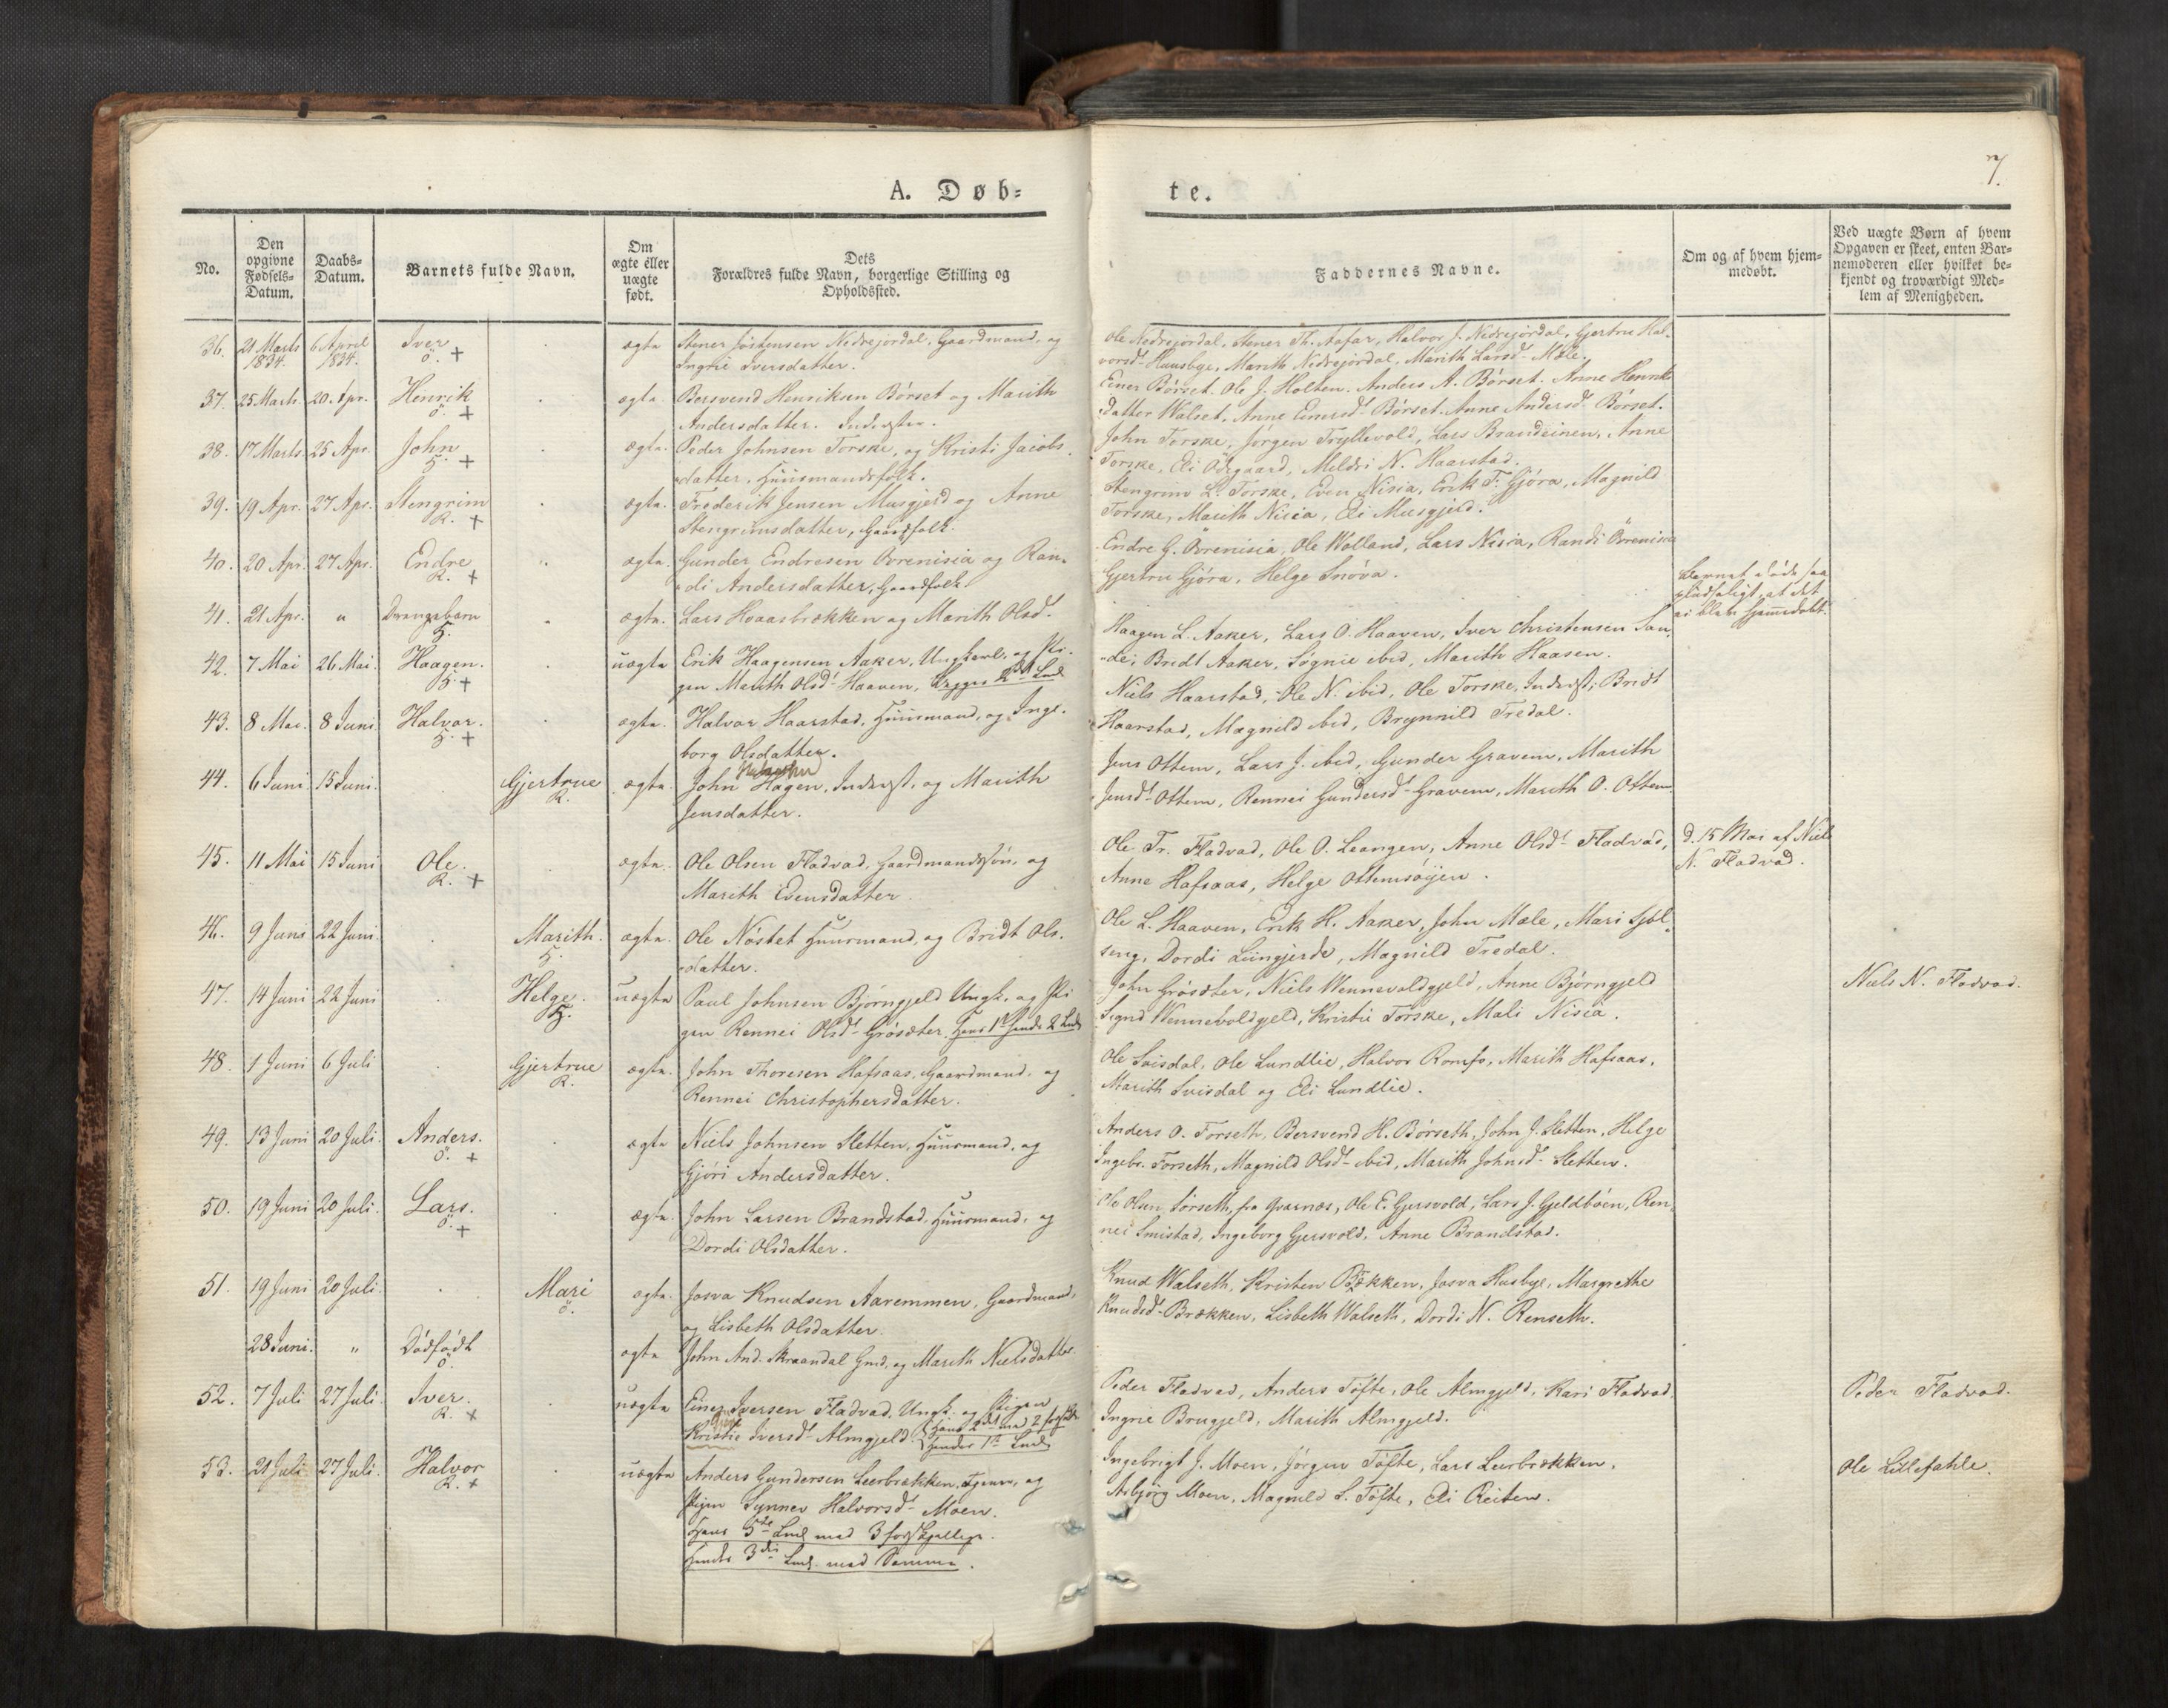 7.
A. Døb=
te.
No.
Den opgivne Fødsels-Datum.
Daabs-Datum.
Barnets fulde Navn.
Om ægte eller uægte født.
Dets Forældres fulde Navn, borgerlige Stilling og Opholdssted.
Faddernes Navne.
Om og af hvem hjemmedøbt.
Ved uægte Børn af hvem Opgaven er skeet, enten Barnemoderen eller hvilket bekjendt og troværdigt Medlem af Menigheden.
36. 21 Marts 1834. 6 April 1834. Iver ö. + ægte Stener Jöstensen Nedrejordal, Gaardmand, og
Ingrie Iversdatter.
Ole Nedrejordal, Stener Th. Aafar, Halvor J. Nedrejordal, Gjertru Hal-
vorsd- Huusbye, Marith Nedrejordal, Marith Larsd- Mæle.
37. 25 Marts. 20. Apr. Henrik ö. + ægte. Bersvend Henriksen Börset og Marith
Andersdatter. Inderster.
Einer Börset. Ole J. Holten. Anders A. Börset. Anne Henriks
datter Walset. Anne Einersd- Börset. Anne Andersd- Börset.
38. 17 Marts. 25 Apr. John H. + ægte. Peder Johnsen Torske, og Kristi Jacobs
datter, Huusmandsfolk.
John Torske, Jörgen Tryllevold, Lars Brandeinen, Anne
Torske, Eli Ödegaard, Meldri N. Haarstad.
39. 19 Apr. 27 Apr. Stengrim R. + ægte. Frederik Jensen Musgjerd og Anne
Stengrimsdatter, Gaardfolk.
Stengrim L. Torske, Even Nisia, Erik F. Gjöra, Magnild
Torske, Marith Nisia, Eli Musgjerd.
40. 20 Apr. 27 Apr. Endre R. + ægte. Gunder Endresen Övrenisia og Ran-
di Andersdatter, Gaardfolk.
Endre G. Övrenisia, Ole Wolland, Lars Nisia, Randi Övrenisia
Gjertru Gjöra, Helge Snöva.
41. 21 Apr. " Drengebarn H. ægte. Lars Hoaasbrækken og Marith Olsd-
Barnet döde saa
pludseligt, at det
ei blev hjemmedöbt.
42. 7 Mai 26 Mai. Haagen. H. + uægte Erik Haagensen Aaker, Ungkarl, og Pi-
gen Marith Olsd- Haaven, Begges
Haagen L. Aaker, Lars O. Haaven, Iver Christensen San-
de, Bridt Aaker, Sögnie ibid, Marith Haasen.
43. 8 Mai. 8 Juni Halvor. H. + ægte. Halvor Haarstad, Huusmand, og Inge-
borg Olsdatter.
Niels Haarstad, Ole N. ibid, Ole Torske, Inderst, Bridt
Haarstad, Magnild ibid, Brynnild Tredal.
44. 6 Juni 15 Juni. Gjertrue R. ægte. John Hagen, Inderst, og Marith
Jensdatter.
Jens Ottem, Lars J. ibid, Gunder Gravem, Marith
Jensd- Ottem, Rennei Gundersd- Gravem, Marith O. Ottem.
45. 11 Mai 15 Juni Ole. R. + ægte. Ole Olsen Fladvad, Gaardmandssön, og
Marith Evensdatter.
Ole Tr. Fladvad, Ole O. Leangen, Anne Olsd- Fladvad,
Anne Hafsaas, Helge Ottemsöyen.
d. 15 Mai af Niels
N. Fladvad.
46. 9 Juni 22 Juni. Marith. H. ægte. Ole Nöstet Huusmand, og Bridt Ols-
datter.
Ole L. Haaven, Erik H. Aaker, John Mæle, Mari Sjöl-
seng, Dordi Liingjerde, Magnild Tredal.
47. 14 Juni 22 Juni Helge. H. uægte Paul Johnsen Björngjeld Ungk. og Pi
gen Rennei Olsd- Grösæter. Hans 1ste hendes 2 Leie
John Grösæter, Niels Wennevoldgjeld, Anne Björngjeld
Signd Wennevoldgjeld, Kristie Torske, Mali Nisia.
Niels N. Fladvad.
48. 1 Juni 6 Juli Gjertrue R. ægte. John Thoresen Hafsaas, Gaardmand, og
Rennei Christophersdatter.
Ole Svisdal, Ole Lundlie, Halvor Romfo, Marith Hafsaas,
Marith Svisdal og Eli Lundlie.
49. 13 Juni 20 Juli. Anders. ö. + ægte Niels Johnsen Sletten, Huusmand, og
Gjöri Andersdatter.
Anders O. Forseth, Bersvend H. Börseth, John J. Sletten, Helge
Ingebr. Forseth, Magnild Olsd- ibid, Marith Johnsd- Sletten.
50. 19 Juni 20 Juli. Lars. ö. + ægte. John Larsen Brandstad, Huusmand, og
Dordi Olsdatter.
Ole Olsen Sörseth, fra Qvarnæs, Ole E. Gjersvold, Lars J. Gjeldböen, Ren-
nei Smistad, Ingeborg Gjersvold, Anne Brandstad.
51. 19 Juni 20 Juli. Mari ö. ægte. Josva Knudsen Aaremmen, Gaardmand,
og Lisbeth Olsdatter.
Knud Walseth, Kristen Brækken, Josva Husbye, Margrethe
Knudsd- Brækken, Lisbeth Walseth, Dordi N. Renseth.
28 Juni. " Dödfödt ö. ægte John And. Skraandal Gmd, og Marith Nielsdatter
52. 7 Juli 27 Juli. Iver. R. + uægte Einer Iversen Fladvad, Ungk. og Pigen
Kristie Iversd- Almgjeld
Hendes 1ste Leie
Peder Fladvad, Anders Töfte, Ole Almgjeld, Kari Fladvad
Ingrie Brugjeld, Marith Almgjeld.
Peder Fladvad.
53. 21 Juli 27 Juli. Halvor R. + uægte Anders Gundersen Leerbrækken, og
Pigen Synnev Halvorsd- Moen.
Hans 5te Leie med 3 forskjellige.
Hendes 3die Leie med Samme.
Ingebrigt J. Moen, Jörgen Töfte, Lars Leerbrækken,
Asbjörg Moen, Magnild L. Töfte, Eli Reiten.
Ole Lillefahle.